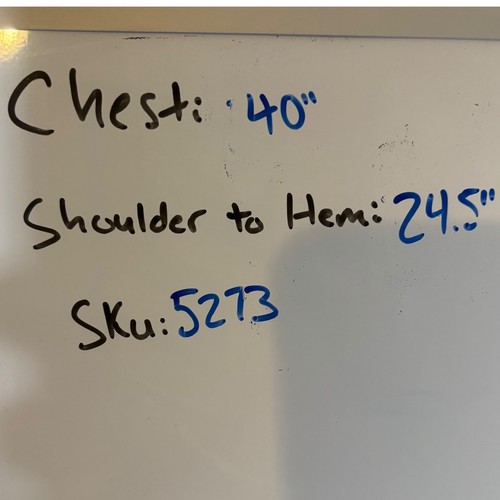 Chest: 40"
Shoulder to Hem: 24.5"
SKu: 5273